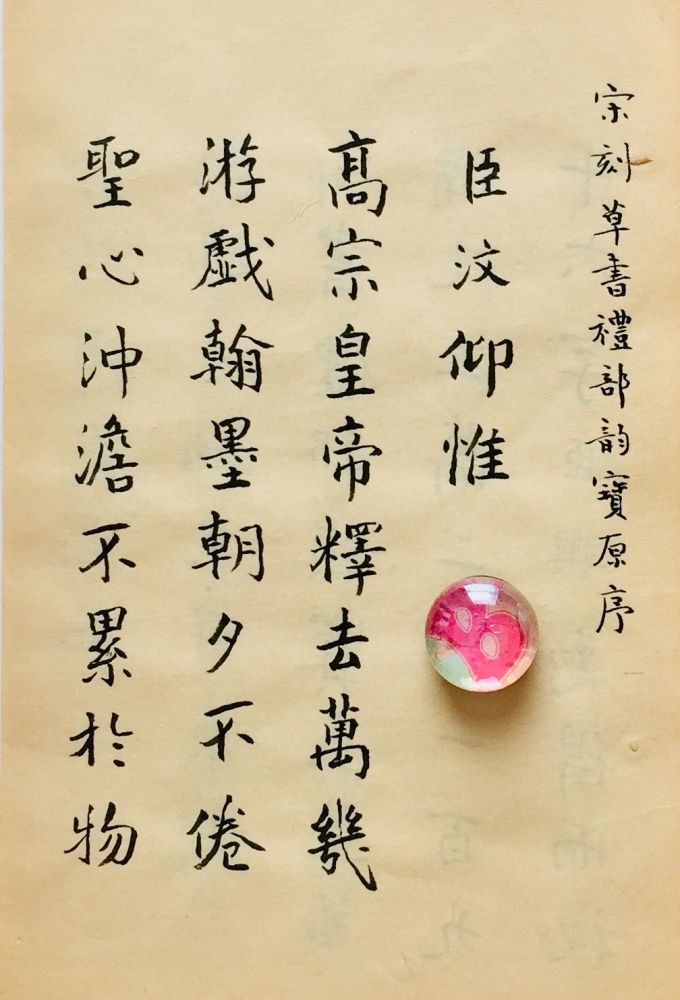 宋刻草書禮部韵寶原序
臣汶仰惟
髙宗皇帝釋去萬幾
游戲翰墨朝夕不倦
聖心沖澹不累於物